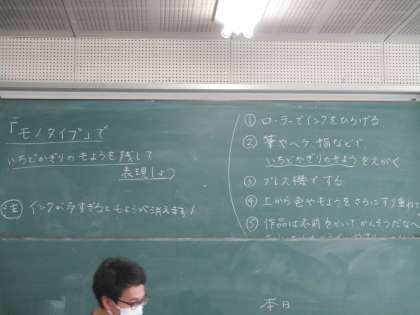 「モノタイプ」で
いちどかぎりのもようを残して
表現しよう
注 インクが多すぎるともようが消えます!
① ローラーでインクをひろげる
② 筆やヘラ、指などで、
いちどかぎりのもようをえがく
③ プレス機でする
④ 上から色やもようをさらにすり重ねて
⑤ 作品は名前をかいてかんそうだなへ
本日